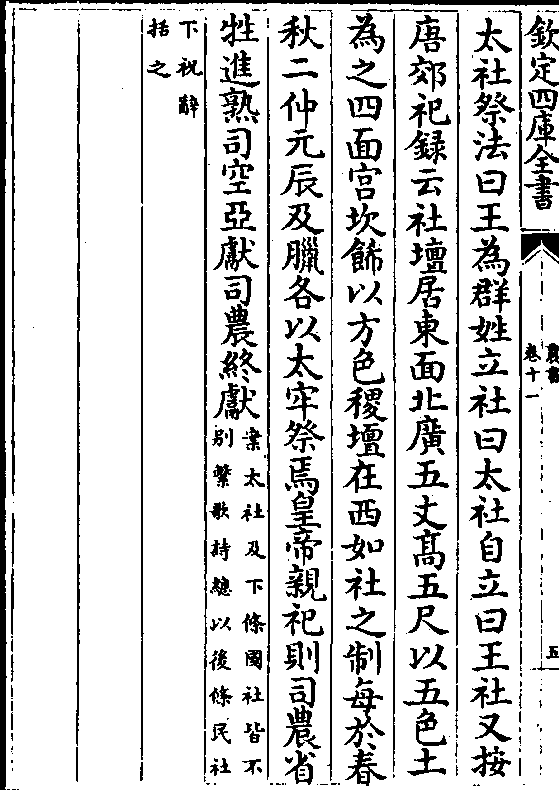 欽定四庫全書
卷十一
五
太社祭法曰王為群姓立社曰太社自立曰王社又按
唐郊祀録云社壇居東面北廣五丈髙五尺以五色土
為之四面宫坎飾以方色稷壇在西如社之制每於春
秋二仲元辰及臘各以太牢祭焉皇帝親祀則司農省
牲進熟司空亞獻司農終獻
案太社及下條國社皆不
别繫歌持總以後條民社
下祝辭
括之